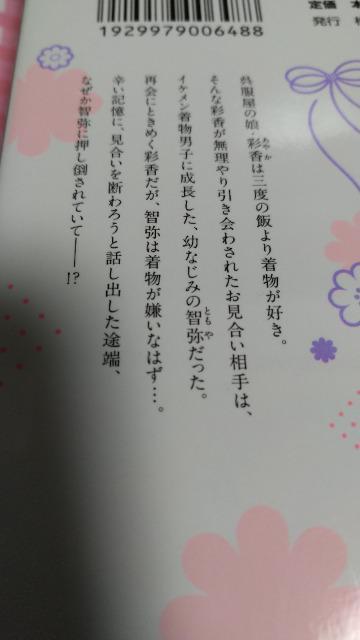 1929979006488
定価
発行
呉服屋の娘・彩香は三度の飯より着物が好き。
あやか
そんな彩香が無理やり引き会わされたお見合い相手は、
イケメン着物男子に成長した、幼なじみの智弥だった。
ともや
再会にときめく彩香だが、智弥は着物が嫌いなはず…。
辛い記憶に、見合いを断わろうと話し出した途端、
なぜか智弥に押し倒されていて――!?